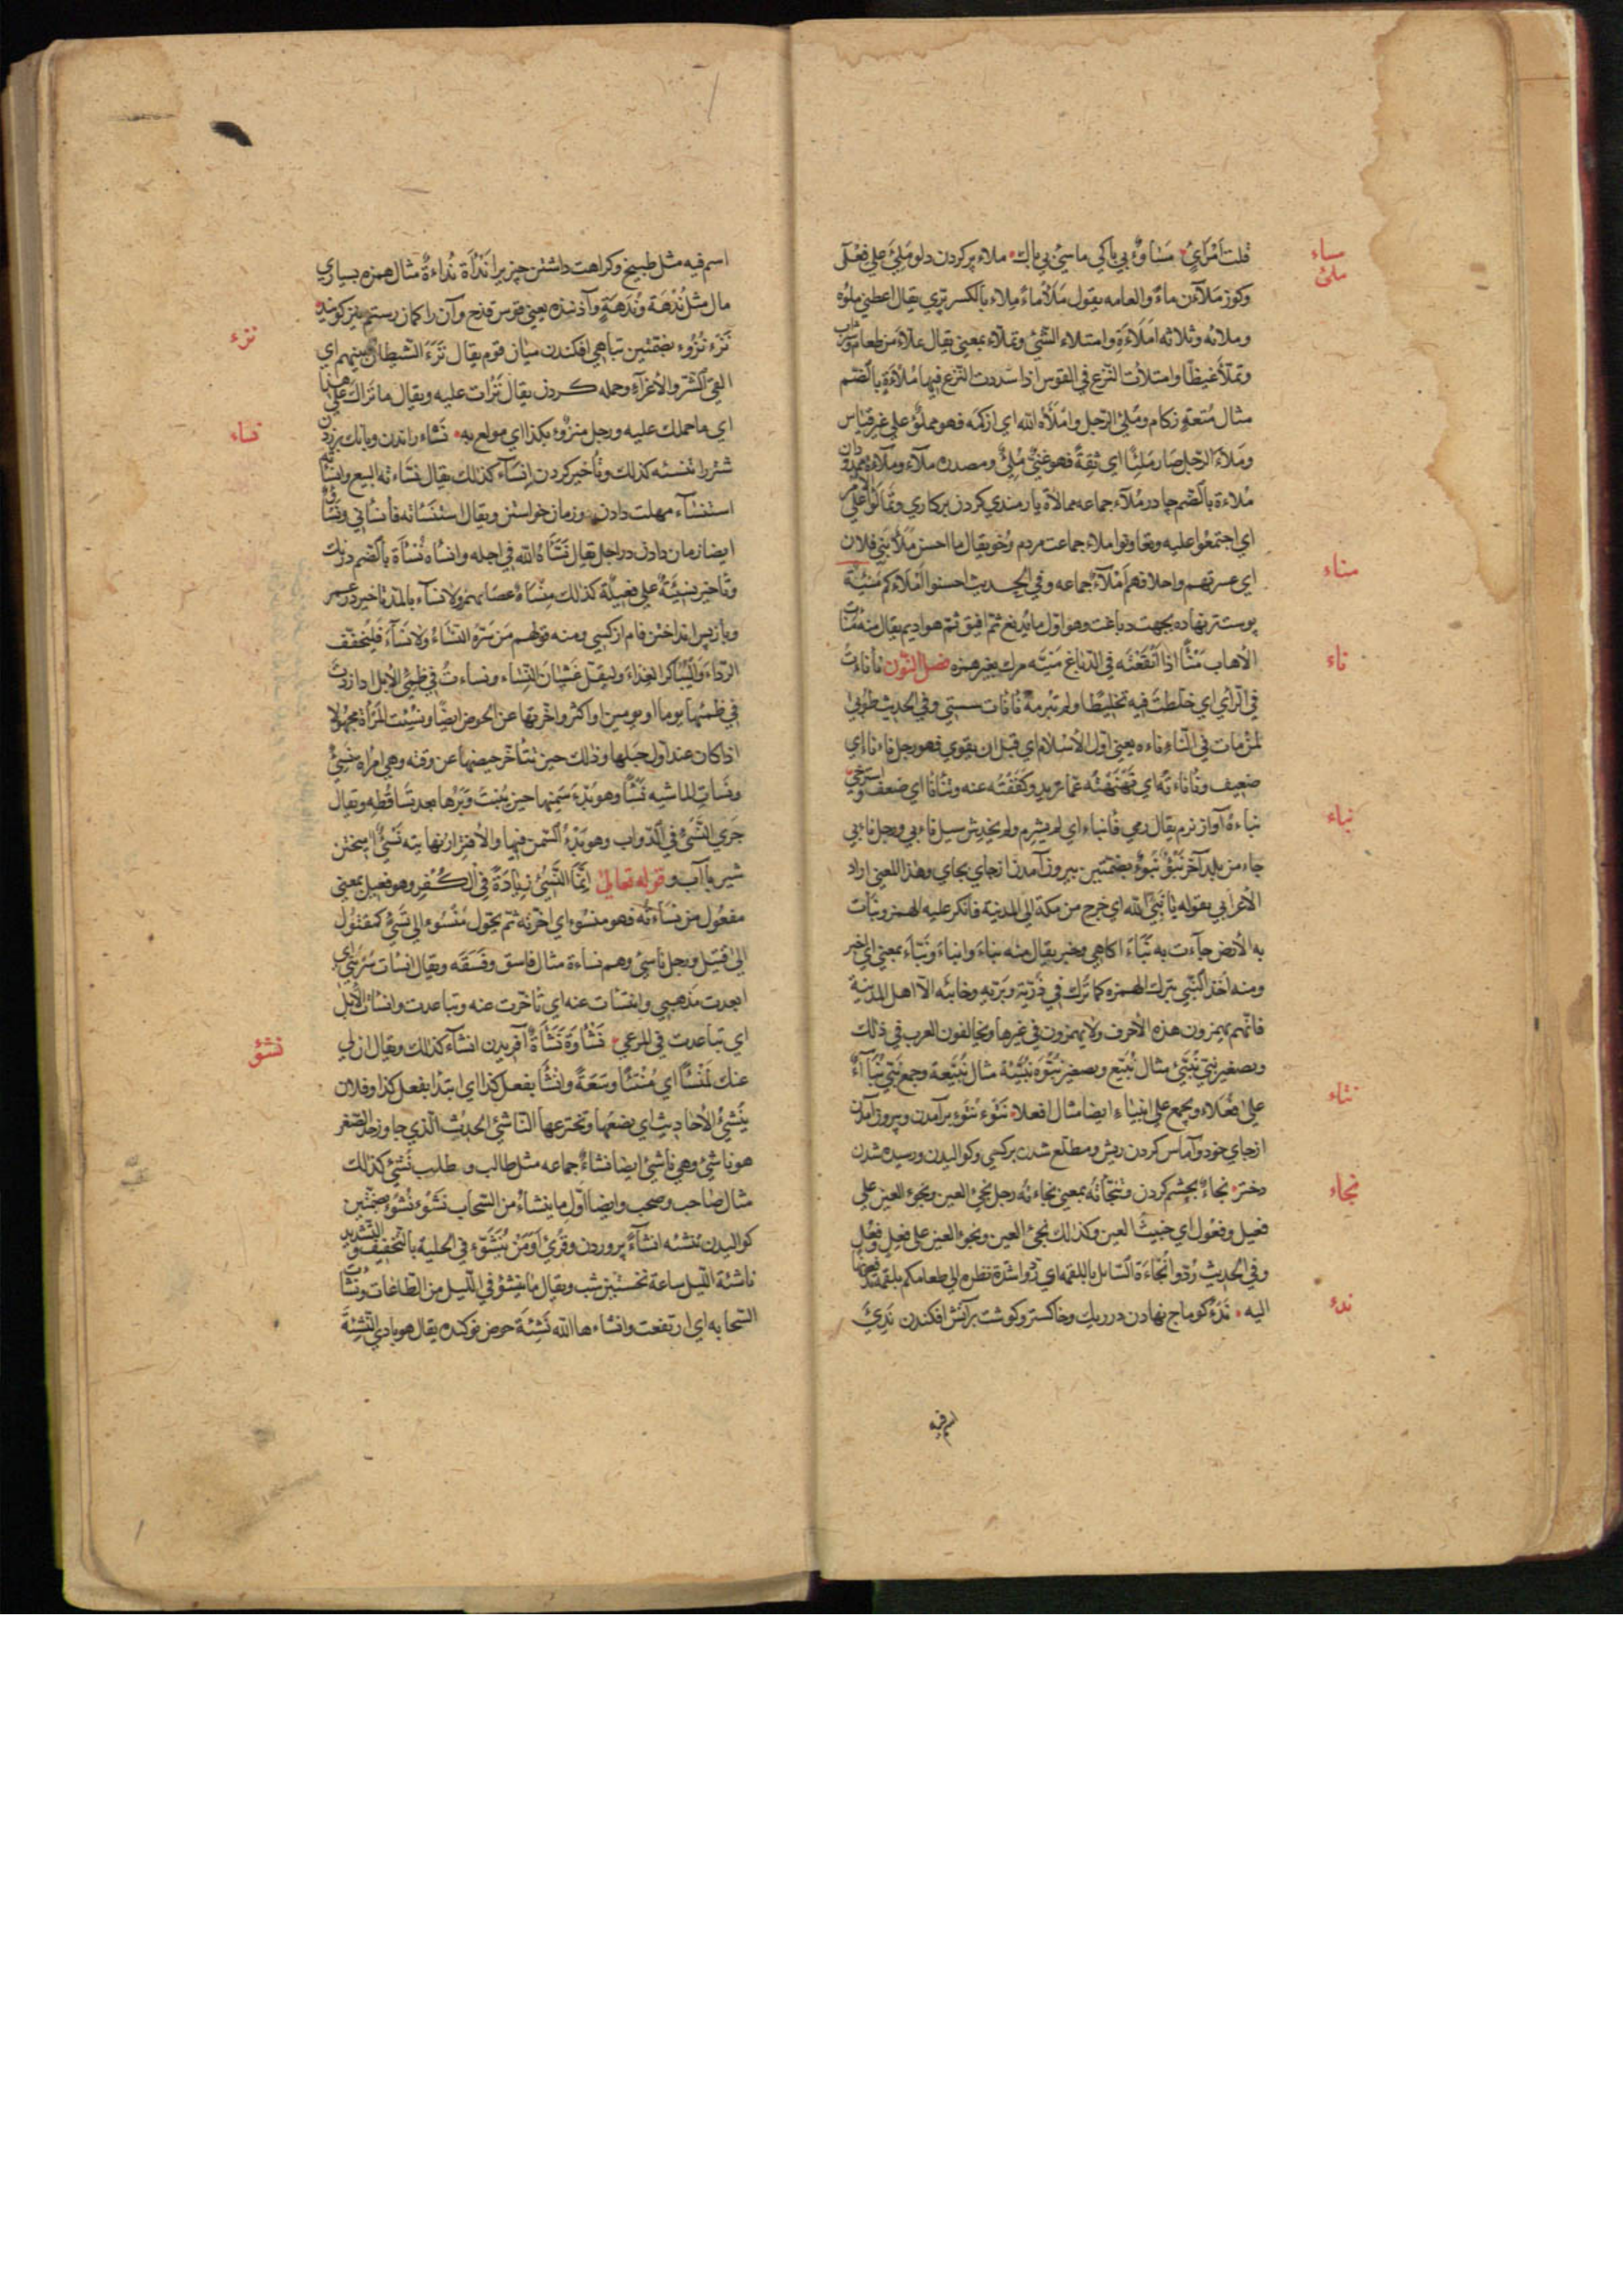 مساء
ملئ
قلت امرأي مساوة بي باكي ماسئ بي باك ملاء پر كردن دلو ملئ على فعلى
وكوز ملآن ماء والعامه يقول ملأ ماء ملاء بالكسر پري يقال اعطني ملؤه
وملائه وثلاثه املاءة وامتلاء الشئ وتملاء بمعني يقال تملاء من طعام وشراب
وتملأ غيظا وامتلأت النزع في القوس اذا شددت النزع فيها ملاءة بالضم
مثال متعة زكام وملئ الرجل واملأه الله اي ازكمه فهو مملؤ على غير قياس
وملاء الرجل صار ملئا اي ثقة فهو غني ملئ ومصدره ملآء وملآءة ممدودان
ملاءة بالضم چادر ملاء جماعه ممالاة يارمندي كردن بركاري وتمالؤا على الامر
اي اجتمعوا عليه وتعاونوا ملاء جماعت مردم وخو يقال ما احسن ملأ بني فلان
مناء
اي عسرتهم واخلاقهم املآء جماعه وفي الحديث احسنوا املاءكم منيئة
پوست تر نهاده بجهت دباغت وهو اول ما يدبغ ثم افيق ثم هو اديم يقال منه منات
ناء
الأهاب منئا اذا انقعته في الدباغ منيته مرك بغير همزه فصل النون نأناءت
في الرأي اي خلطت فيه تخليطا ولم تبرمه نانات سستي وفي الحديث طوبي
لمن مات في النأناءه يعني اول الاسلام اي قبل ان يقوي فهو رجل نأناء اي
ضعيف ونأناءته اي نهنهته عما يريد وكففته عنه وتنأنأ اي ضعف واسترخي
نباء
نباءة آواز نرم يقال رمي فانباء اي لم يشرم ولم يخدش سيل نابي ورجل نابي
جاء من بلد آخر نبوء نبوء بضمتين بيرون آمدن از جاي بجاي وهذا المعني اراد
الأعرابي بقوله يا نبئ الله اي خرج من مكة الي المدينة فانكر عليه الهمز ونبات
به الأرض جآءت به نباء اكاهي وخبر يقال منه نباء وانباء ونباء بمعني اي اخبر
ومنه اخذ النبي بترك الهمزه كما ترك في ذرية وبرية وخابئه الا اهل المدينة
فانهم يهمزون هذه الأحرف ولا يهمزون في غيرها ويخالفون العرب في ذلك
وتصغير نبي نبيئ مثال نبيع وتصغير نبوه نبيئة مثال نبيعة وجمع نبي نبآء
نتاء
علي افعلاء ويجمع على انبياء ايضا مثال افعلاء نتوء نتوء برآمدن وبيرون آمدن
از جاي خود وآماس كردن ريش ومطلع شدن بركسي وكواليدن ورسيده شدن
نجاء
دختر نجاء بچشم كردن وتنجأته بمعني نجاءته رجل نجئ العين ونجوء العين علي
فعيل وفعول اي خبيث العين وكذلك نجئ العين ونجؤ العين على فعل وفعل
وفي الحديث ردوا نجاءة السائل باللقمه اي ردوا شدة نظره الي طعامكم بلقمة تدفعونها
ندء
اليه ندء كوماج نهادن در ريك وخاكستر وكوشت برآتش افكندن ندئ
اسم فيه
اسم فيه مثل طبيخ وكراهت داشتن چيزيرا ندأة نداءة مثال همزه بسياري
مال مثل ندهة وندهة وآذنده يعني قوس قزح وآن را كمان رستم نيز كويند
نزء
نزء نزوء بضمتين تباهي افكندن ميان قوم يقال نزء الشيطان بينهم اي
القي الشر والأغراء وحمله كردن يقال نزات عليه ويقال ما نزاك على هذا
نساء
اي ما حملك عليه ورجل منزوء بكذا اي مولع به نساء راندن وبانك برزدن
شتر را تنسئه كذلك وتأخير كردن انساء كذلك يقال نساءته البيع وانسأته
استنساء مهلت دادن وزمان خواستن ويقال استنسأته فأنسأني ونسأ
ايضا زمان دادن در اجل يقال نسأه الله في اجله وانساه نسأة بالضم درنك
وتأخير نسيئة على فعيلة كذلك منسأة عصا يهمز ولا نسآء بالمد تاخير در عمر
وبازپس انداختن وام از كسي ومنه قولهم من سره النساء ولا نسآء فليخفف
الرداء وليباكر الغداء وليقل غشيان النساء ونساءت في ظمئ الأبل ازا زدت
في ظمئها يوما او يومين او اكثر واخرتها عن الحوض ايضا ونسئت المرأة مجهولا
اذا كان عند اول حبلها وذلك حين يتأخر حيضها عن وقته وهي امرأه نسئ
ونسات الماشيه نسأ وهو بدء سمنها حين ينبت وبرها بعد تساقطه ويقال
جري النسئ في الدواب وهو بدء السمن فيها والأقترار نهايته نسئ اميختن
شير باآب و قوله تعالي انما النسئ زيادة في الكفر وهو فعيل بمعني
مفعول من نسأته فهو منسوء اي اخرته ثم يحول منسوء الي نسئ كمقتول
الي قتيل ورجل ناسئ وهم نساءة مثال فاسق وفسقه ويقال انسات سربتي اي
ابعدت مذهبي وانتسات عنه اي تأخرت عنه وتباعدت وانسات الأبل
نشؤ
اي تباعدت في المرعي نشاوة نشأة آفريدن انشاء كذلك ويقال ان لي
عنك لمنتسأ اي منتئا وسعة وانشأ يفعل كذا اي ابتدأ يفعل كذا وفلان
ينشئ الأحاديث اي يضعها وتخترعها الناشئ الحديث الذي جاوز حد الصغر
هو ناشئ وهي ناشئ ايضا نشاء جماعه مثل طالب وطلب نشئ كذلك
مثال صاحب وصحب وايضا اول ما ينشاء من السحاب نشوء نشوء بضمتين
كواليدن تنشئه انشآء پروردن وقرئ اومن ينشؤ في الحلية بالتخفيف والتشديد
ناشئة الليل ساعة نخستين شب ويقال ما ينشؤ في الليل من الطاعات ونشات
السحابه اي ارتفعت وانشاءها الله نشئة حوض نوكنده يقال هو بادي النشئة